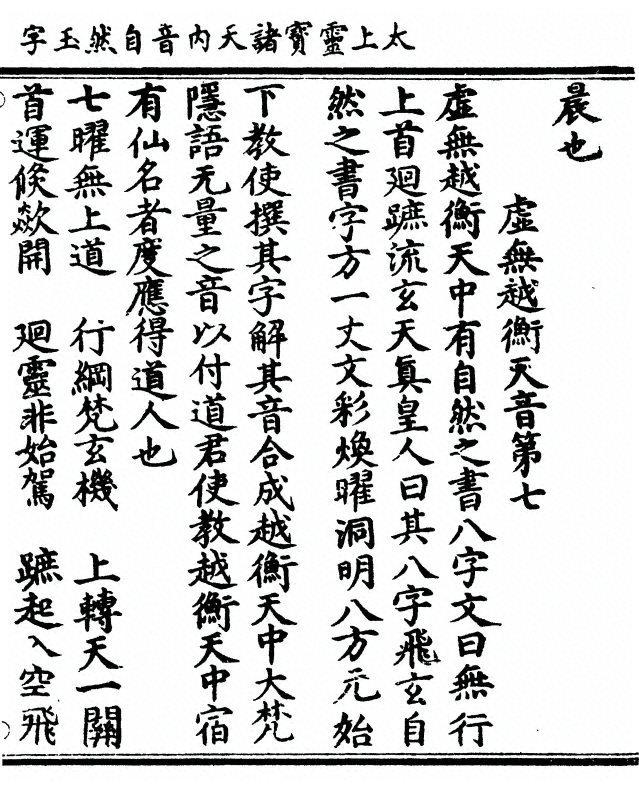 太上靈寶諸天內音自然玉字
晨也
虛無越衡天音第七
虛無越衡天中有自然之書八字文曰無行
上首廻蹠流玄天真皇人曰其八字飛玄自
然之書字方一丈文彩煥曜洞明八方元始
下教使撰其字解其音合成越衡天中大梵
隱語无量之音以付道君使教越衡天中宿
有仙名者度應得道人也
七曜無上道 行綱梵玄機 上轉天一關
首運倏歘開 廻靈非始駕 蹠起入空飛